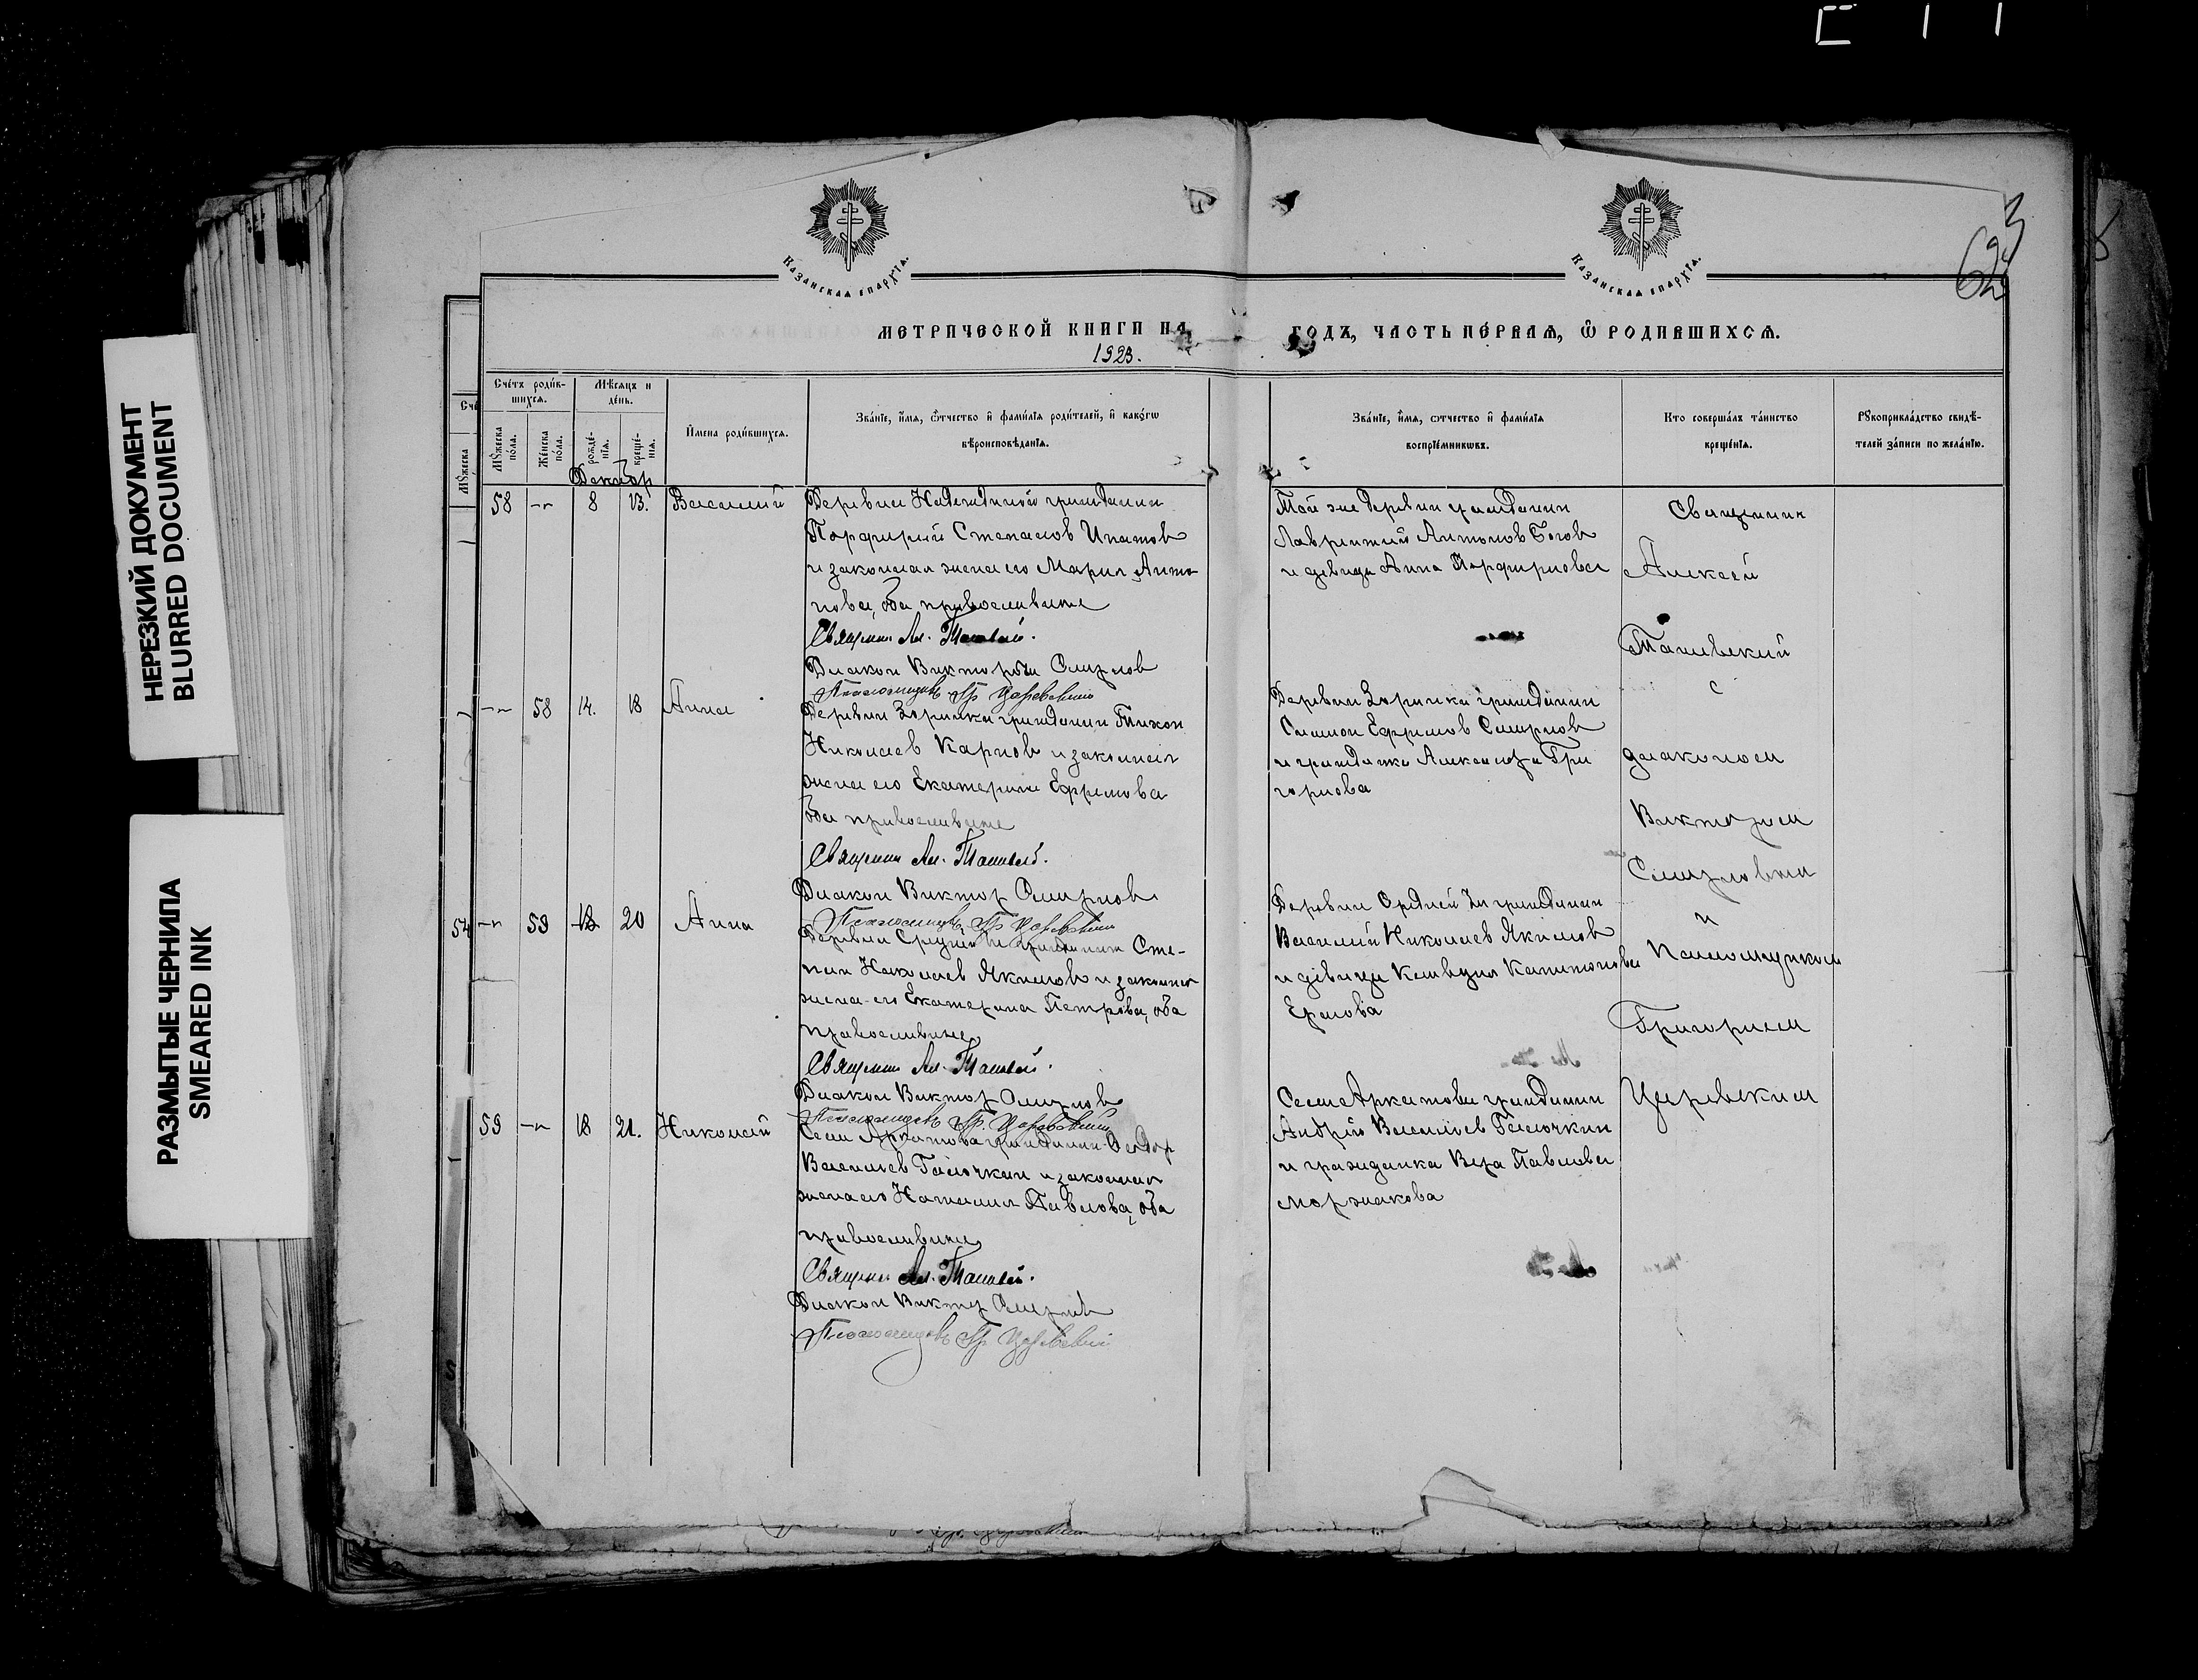 НЕРЕЗКИЙ ДОКУМЕНТ
BLURRED DOCUMENT
РАЗМЫТЫЕ ЧЕРНИЛА
SMEARED INK
КАЗАНСКАѦ ЕПАРХІА.
КАЗАНСКАѦ ЕПАРХІА.
МЕТРИЧЕСКОЙ КНИГИ НА
1923.
ГОДЪ, ЧАСТЬ ПЕ́РВАѦ, Ѽ РОДИВШИХСѦ.
Сче́тъ роди́в-
шихсѧ.
Мѣ́сѧцъ и
де́нь.
Мꙋ́жеска
по́ла.
Же́нска
по́ла.
рожде́-
нїѧ.
креще́-
нїѧ.
И҆мена роди́вшихсѧ.
Зва́нїе, и҆́мѧ, ѻ҆́тчество и҆ фами́лїѧ роди́телей, и҆ како́гѡ
вѣроисповѣ́данїѧ.
Зва́нїе, и҆́мѧ, ѻ҆́тчество и҆ фами́лїѧ
воспрїе́мникѡвъ.
Кто̀ соверша́лъ та́инство
креще́нїѧ.
Рꙋкоприкла́дство свидѣ́-
телей за́писи по жела́нїю.
Декабр
58 -"- 8 13. Василий
Деревни Надеждиной гражданин
Порфирий Степанов Ипатов
и законная жена его Мария Анто-
нова, оба православные
Священ. Ал.
Диакон Виктор Смирнов
Псаломщик Гр. Царевский
Той же деревни гражданин
Лаврентий Антонов
и девица Анна Порфириова
Священник
Алексей
с
диаконом
Виктором
Смирновым
и
Псаломщиком
Григорием
Царевским
-"- 58 14. 18 Анна
Деревни гражданин Тихон
Николаев Карпов и законная
жена его Екатерина Ефремова
оба православные
Священ. Ал.
Диакон Виктор Смирнов
Псаломщик Гр. Царевский
Деревни гражданин
Ефремов Смирнов
и гражданка Александра Гри
горьева
-"- 59 18 20 Анна
Деревни Средней гражданин Сте-
пан Николаев Якимов и законная
жена его Екатерина Петрова, оба
православные
Священ. Ал.
Диакон Виктор Смирнов
Псаломщик Гр. Царевский
Деревни Средней гражданин
Василий Николаев Якимов
и девица Клавдия Капитонова
59 -"- 18 21. Николай
Села гражданин
Васильев Галочкин и законная
жена его Наталия Павлова, оба
православные
Священ. Ал.
Диакон Виктор Смирнов
Псаломщик Гр. Царевский
Села гражданин
Андрей Васильев Галочкин
и гражданка Вера Павлова